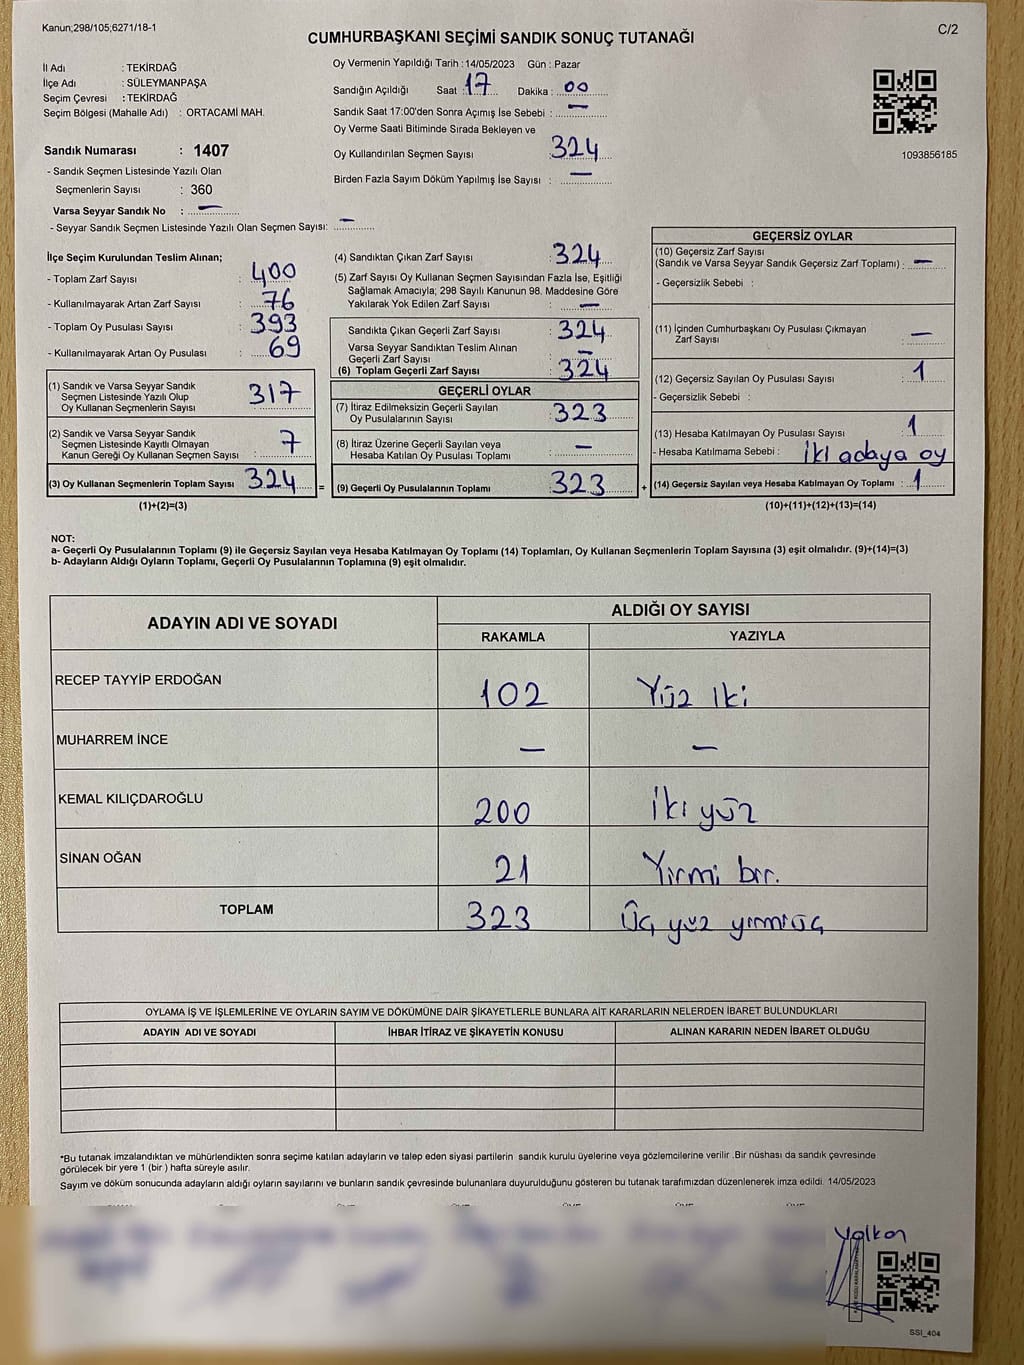 Kanun;298/105;6271/18-1
C/2
CUMHURBAŞKANI SEÇİMİ SANDIK SONUÇ TUTANAĞI
İl Adı : TEKİRDAĞ
İlçe Adı : SÜLEYMANPAŞA
Seçim Çevresi : TEKİRDAĞ
Seçim Bölgesi (Mahalle Adı) : ORTACAMİ MAH.
Sandık Numarası : 1407
- Sandık Seçmen Listesinde Yazılı Olan
Seçmenlerin Sayısı : 360
Varsa Seyyar Sandık No : —
- Seyyar Sandık Seçmen Listesinde Yazılı Olan Seçmen Sayısı: —
Oy Vermenin Yapıldığı Tarih : 14/05/2023 Gün : Pazar
Sandığın Açıldığı Saat : 17 Dakika : 00
Sandık Saat 17:00'den Sonra Açımış İse Sebebi : —
Oy Verme Saati Bitiminde Sırada Bekleyen ve
Oy Kullandırılan Seçmen Sayısı : 324
Birden Fazla Sayım Döküm Yapılmış İse Sayısı : —
1093856185
İlçe Seçim Kurulundan Teslim Alınan;
- Toplam Zarf Sayısı : 400
- Kullanılmayarak Artan Zarf Sayısı : 76
- Toplam Oy Pusulası Sayısı : 393
- Kullanılmayarak Artan Oy Pusulası : 69
(1) Sandık ve Varsa Seyyar Sandık
Seçmen Listesinde Yazılı Olup
Oy Kullanan Seçmenlerin Sayısı : 317
(2) Sandık ve Varsa Seyyar Sandık
Seçmen Listesinde Kayıtlı Olmayan
Kanun Gereği Oy Kullanan Seçmen Sayısı : 7
(3) Oy Kullanan Seçmenlerin Toplam Sayısı : 324 =
(1)+(2)=(3)
(4) Sandıktan Çıkan Zarf Sayısı : 324
(5) Zarf Sayısı Oy Kullanan Seçmen Sayısından Fazla İse, Eşitliği
Sağlamak Amacıyla; 298 Sayılı Kanunun 98. Maddesine Göre
Yakılarak Yok Edilen Zarf Sayısı : —
Sandıkta Çıkan Geçerli Zarf Sayısı : 324
Varsa Seyyar Sandıktan Teslim Alınan
Geçerli Zarf Sayısı : —
(6) Toplam Geçerli Zarf Sayısı : 324
GEÇERLİ OYLAR
(7) İtiraz Edilmeksizin Geçerli Sayılan
Oy Pusulalarının Sayısı : 323
(8) İtiraz Üzerine Geçerli Sayılan veya
Hesaba Katılan Oy Pusulası Toplamı : —
(9) Geçerli Oy Pusulalarının Toplamı : 323 +
GEÇERSİZ OYLAR
(10) Geçersiz Zarf Sayısı
(Sandık ve Varsa Seyyar Sandık Geçersiz Zarf Toplamı) : —
- Geçersizlik Sebebi :
(11) İçinden Cumhurbaşkanı Oy Pusulası Çıkmayan
Zarf Sayısı : —
(12) Geçersiz Sayılan Oy Pusulası Sayısı : 1
- Geçersizlik Sebebi :
(13) Hesaba Katılmayan Oy Pusulası Sayısı : 1
- Hesaba Katılmama Sebebi : İki adaya oy
(14) Geçersiz Sayılan veya Hesaba Katılmayan Oy Toplamı : 1
(10)+(11)+(12)+(13)=(14)
NOT:
a- Geçerli Oy Pusulalarının Toplamı (9) ile Geçersiz Sayılan veya Hesaba Katılmayan Oy Toplamı (14) Toplamları, Oy Kullanan Seçmenlerin Toplam Sayısına (3) eşit olmalıdır. (9)+(14)=(3)
b- Adayların Aldığı Oyların Toplamı, Geçerli Oy Pusulalarının Toplamına (9) eşit olmalıdır.
ADAYIN ADI VE SOYADI ALDIĞI OY SAYISI
RAKAMLA YAZIYLA
RECEP TAYYİP ERDOĞAN 102 Yüz iki
MUHARREM İNCE — —
KEMAL KILIÇDAROĞLU 200 İki yüz
SİNAN OĞAN 21 Yirmi bir.
TOPLAM 323 Üç yüz yirmi üç
OYLAMA İŞ VE İŞLEMLERİNE VE OYLARIN SAYIM VE DÖKÜMÜNE DAİR ŞİKAYETLERLE BUNLARA AİT KARARLARIN NELERDEN İBARET BULUNDUKLARI
ADAYIN ADI VE SOYADI İHBAR İTİRAZ VE ŞİKAYETİN KONUSU ALINAN KARARIN NEDEN İBARET OLDUĞU
*Bu tutanak imzalandıktan ve mühürlendikten sonra seçime katılan adayların ve talep eden siyasi partilerin sandık kurulu üyelerine veya gözlemcilerine verilir .Bir nüshası da sandık çevresinde
görülecek bir yere 1 (bir ) hafta süreyle asılır.
Sayım ve döküm sonucunda adayların aldığı oyların sayılarını ve bunların sandık çevresinde bulunanlara duyurulduğunu gösteren bu tutanak tarafımızdan düzenlenerek imza edildi. 14/05/2023
SSI_404